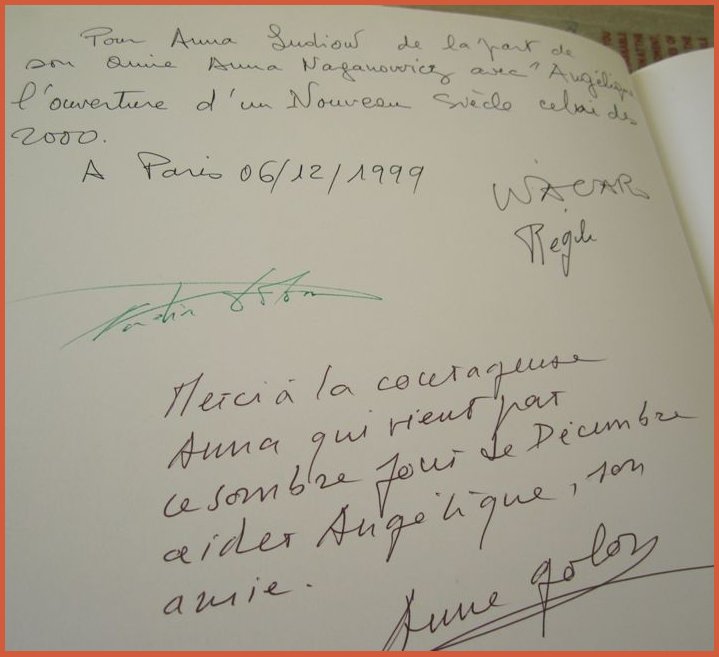 Pour Anna Ludiow de la part de
son Amie Anna Naganowicz avec "Angélique
l'ouverture d'un Nouveau Siècle celui des
2000.
A Paris 06/12/1999
WACAR
Merci à la courageuse
Anna qui vient par
ce sombre jour de Décembre
aider Angélique, son
amie.
Anne Golon